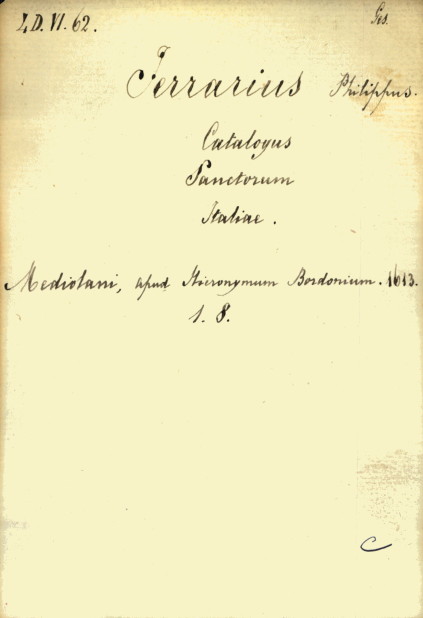 4. D. VI. 62. Ges.
Ferrarius Philippus.
Catalogus
Sanctorum
Italiae.
Mediolani, apud Hieronymum Bordonium. 1613.
1. 8.
C